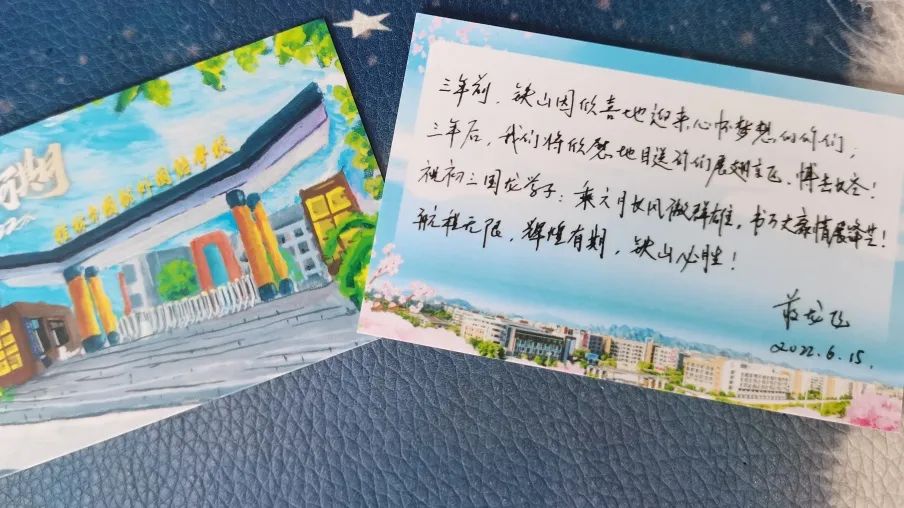 有期
三年前，铁山因欣喜地迎来心怀梦想的你们；
三年后，我们将欣慰地目送你们展翅高飞、搏击长空！
祝初三国龙学子：乘六月长风傲群雄，书万丈豪情展锋芒！
航程无限，辉煌有期，铁山必胜！
2022.6.15.